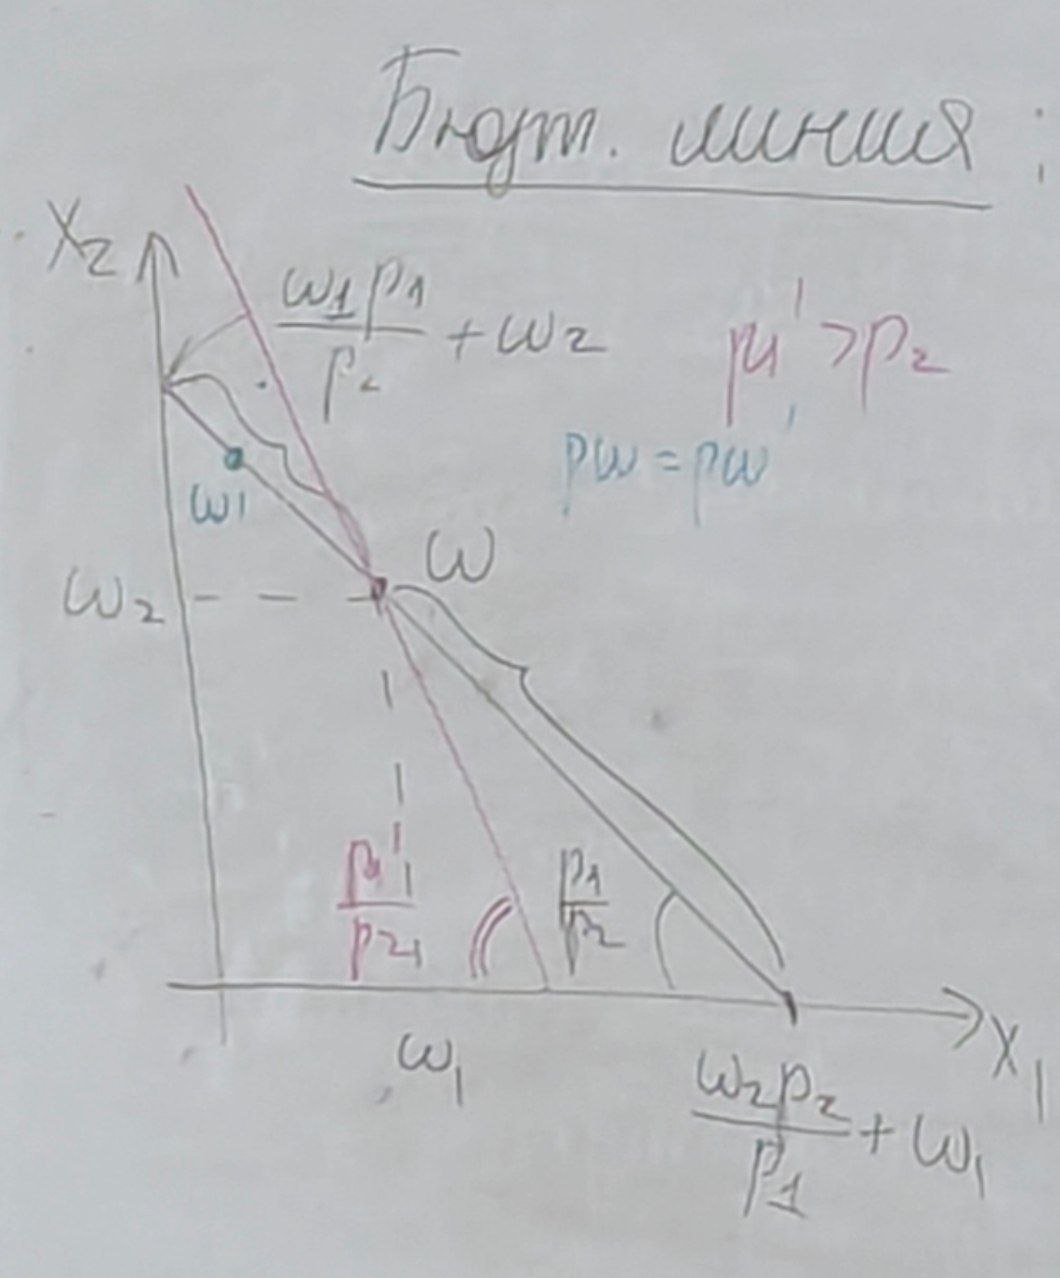 Бюдт. линия :
X₂
ω₁p₁/p₂ + ω₂
p₁' > p₂
pω = pω'
ω'
ω
ω₂
p₁'/p₂
p₁/p₂
ω₁
X₁
ω₂p₂/p₁ + ω₁